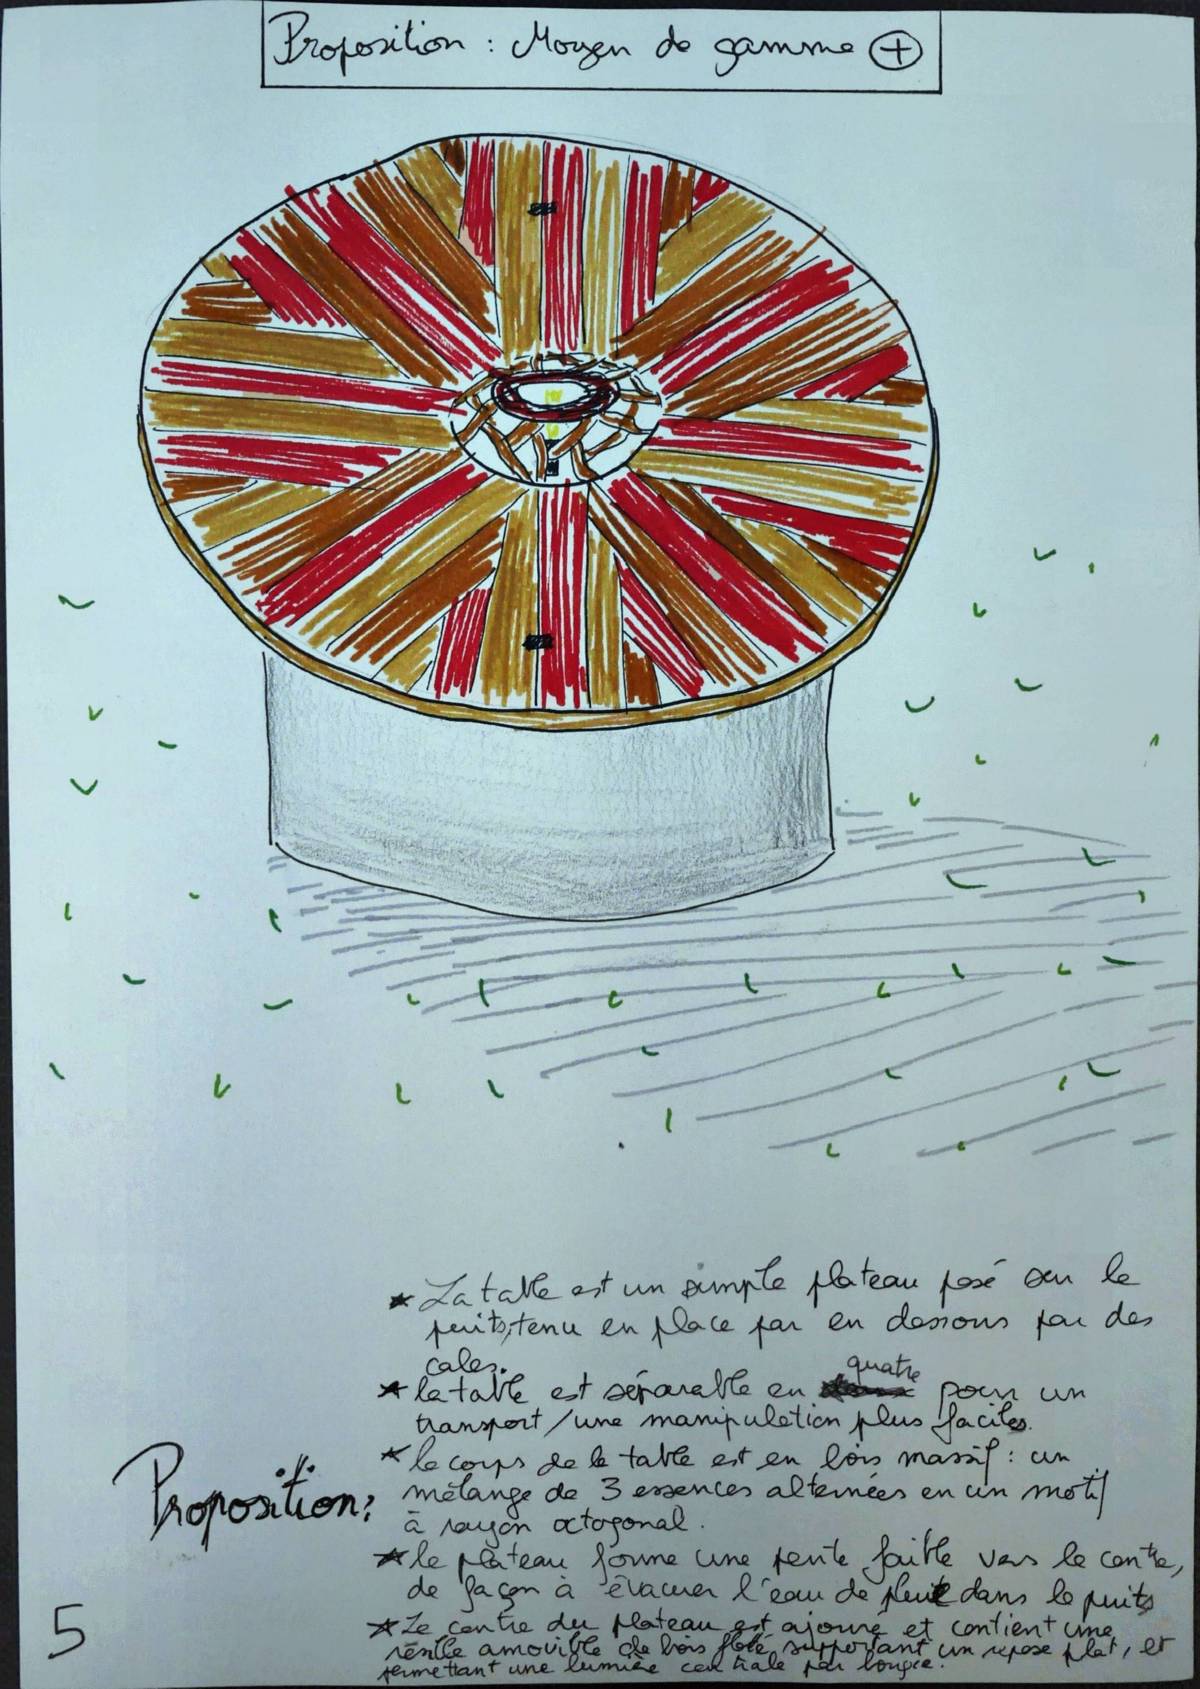 Proposition : Moyen de gamme +
* La table est un simple plateau posé sur le
puits, tenu en place par en dessous par des
cales.
quatre
* la table est séparable en pour un
transport/une manipulation plus faciles.
* le corps de la table est en bois massif : un
mélange de 3 essences alternées en un motif
à rayon octogonal.
Proposition :
* le plateau forme une pente faible vers le centre,
de façon à évacuer l'eau de pluie dans le puits
* Le centre du plateau est ajouré et contient une
résille amovible de bois flotté supportant un repose plat, et
permettant une lumière centrale par bougie.
5